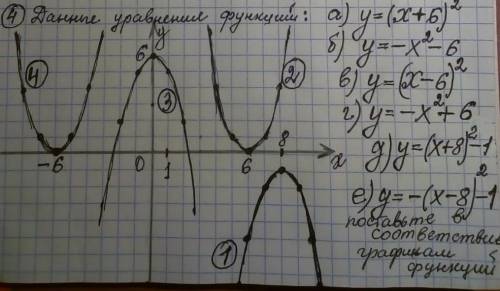 ④ Данные уравнения функций:
а) y=(x+6)²
б) y=-x²-6
в) y=(x-6)²
г) y=-x²+6
д) y=(x+8)²-1
е) y=-(x-8)²-1
поставьте в
соответствие
графикам
функций
y
6
④
③
②
8
-6
0
1
6
x
①